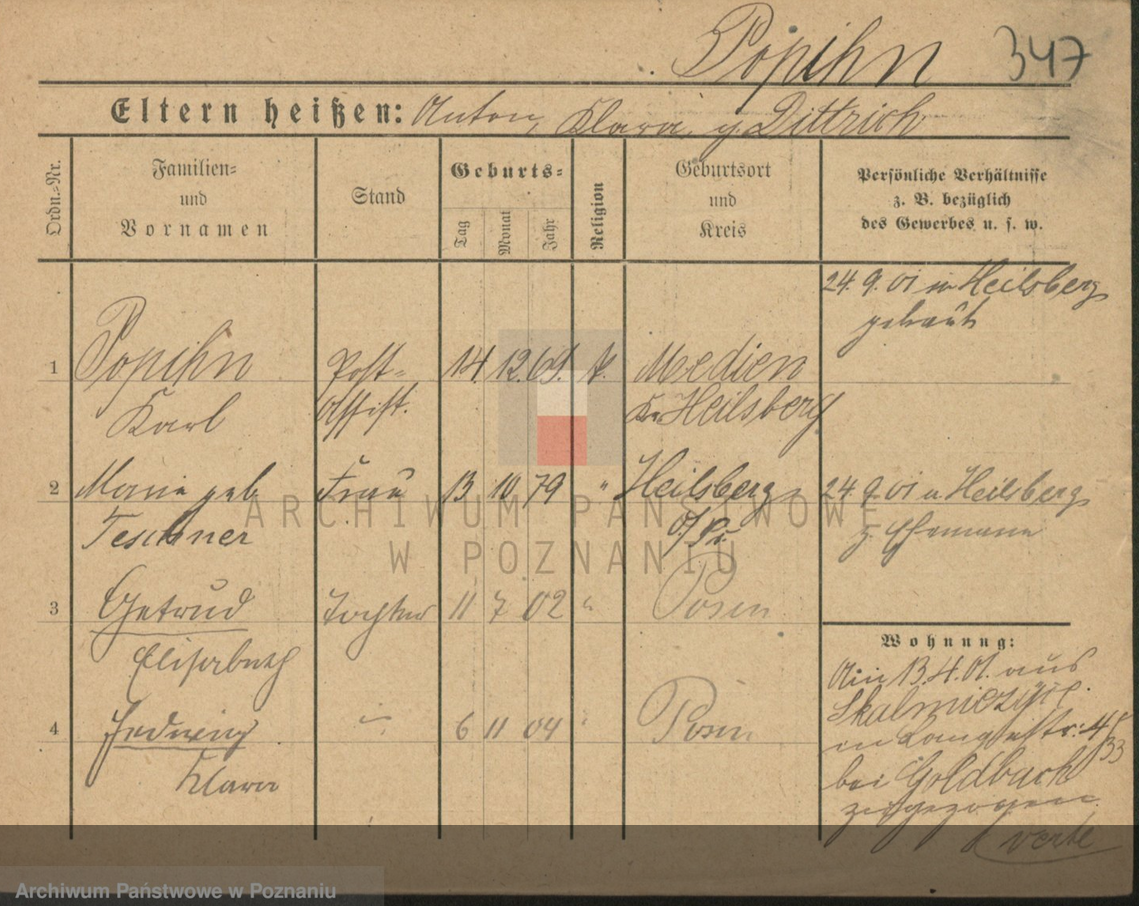 Popihn 347
Eltern heißen: Anton, Klara g. Dittrich
Ordn.-Nr.
Familien-
und
Vornamen
Stand
Geburts-
Tag
Monat
Jahr
Religion
Geburtsort
und
Kreis
Persönliche Verhältnisse
z. B. bezüglich
des Gewerbes u. s. w.
24. 9. 01 in Heilsberg
getraut
1 Popihn Post- 14. 12. 69. k. Medien
Karl Assist. Kr. Heilsberg
2 Marie geb. Frau 13 10 79 " Heilsberg 24. 9. 01 in Heilsberg
Teschner O/Pr. z. Ehemann
3 Getrud Tochter 11 7 02 " Posen
Elisabeth
Wohnung:
Am 13. 4. 01. aus
4 Hedwig " 6 11 04 " Posen
Klara
in Langestr: 4
bei Goldbach
zugezogen.
verte
ARCHIWUM PAŃSTWOWE
W POZNANIU
Archiwum Państwowe w Poznaniu